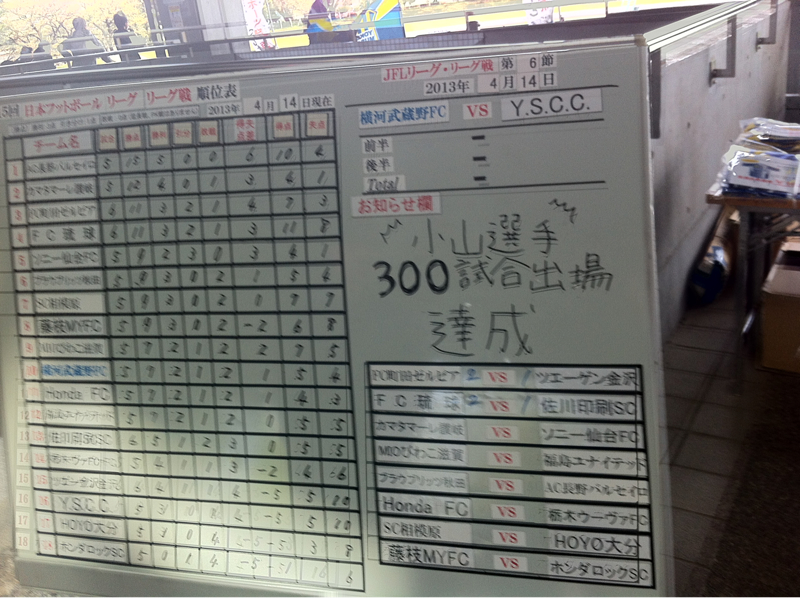 5回 日本フットボール リーグ リーグ戦 順位表
2013年 4月 14日現在
チーム名 試合 勝点 勝利 引分 敗戦 得失点差 得点 失点
1 AC長野パルセイロ 5 15 5 0 0 6 10 4
2 カマタマーレ讃岐 5 12 4 0 1 3 4 1
3 FC町田ゼルビア 6 11 3 2 1 4 7 3
4 FC琉球 6 11 3 2 1 3 11 8
5 ソニー仙台FC 5 9 2 3 0 3 4 1
6 ブラウブリッツ秋田 5 9 3 0 2 1 5 4
7 SC相模原 5 9 3 0 2 0 7 7
8 藤枝MYFC 5 9 3 0 2 -2 6 8
9 MIOびわこ滋賀 5 7 2 1 2 2 7 5
10 横河武蔵野FC 5 7 2 1 2 1 5 4
11 Honda FC 5 7 2 1 2 1 4 3
12 福島ユナイテッド 5 7 2 1 2 0 5 5
13 佐川印刷SC 6 5 1 2 3 0 5 5
14 栃木ウーヴァFC 5 4 1 1 3 -2 4 6
15 ツエーゲン金沢 6 4 1 1 4 -5 5 10
16 Y.S.C.C. 5 3 4 -5 5 10
17 HOYO大分 5 3 1 0 4 -5 3 8
18 ホンダロックSC 5 0 1 4 -5 6
JFLリーグ・リーグ戦 第 6 節
2013年 4月 14日
横河武蔵野FC VS Y.S.C.C.
前半 -
後半 -
Total -
お知らせ欄
小山選手
300試合出場
達成
FC町田ゼルビア 2 VS 1 ツエーゲン金沢
FC琉球 2 VS 1 佐川印刷SC
カマタマーレ讃岐 VS ソニー仙台FC
MIOびわこ滋賀 VS 福島ユナイテッド
ブラウブリッツ秋田 VS AC長野パルセイロ
Honda FC VS 栃木ウーヴァFC
SC相模原 VS HOYO大分
藤枝MYFC VS ホンダロックSC